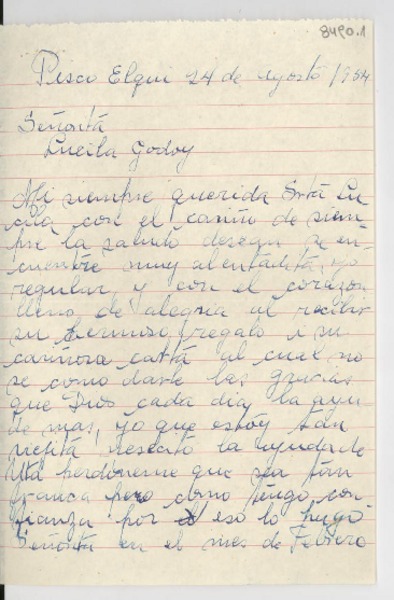 8490.1
Pisco Elqui 24 de agosto /954
Señorita
Lucila Godoy
Mi siempre querida Srta Lu
cila con el cariño de siem
pre la saludo desean se en
cuentre muy alentadita, yo
regular, y con el corazon
lleno de alegria al recibir
su hermoso regalo i su
cariñosa carta al cual no
se como darle las gracias
que Dios cada dia la ayu
de mas, yo que estoy tan
viejita, nesesito la ayuda de
Uta perdoneme que sea tan
franca pero como tengo con
fianza por eso lo hago
Señorita en el mes de Febrero